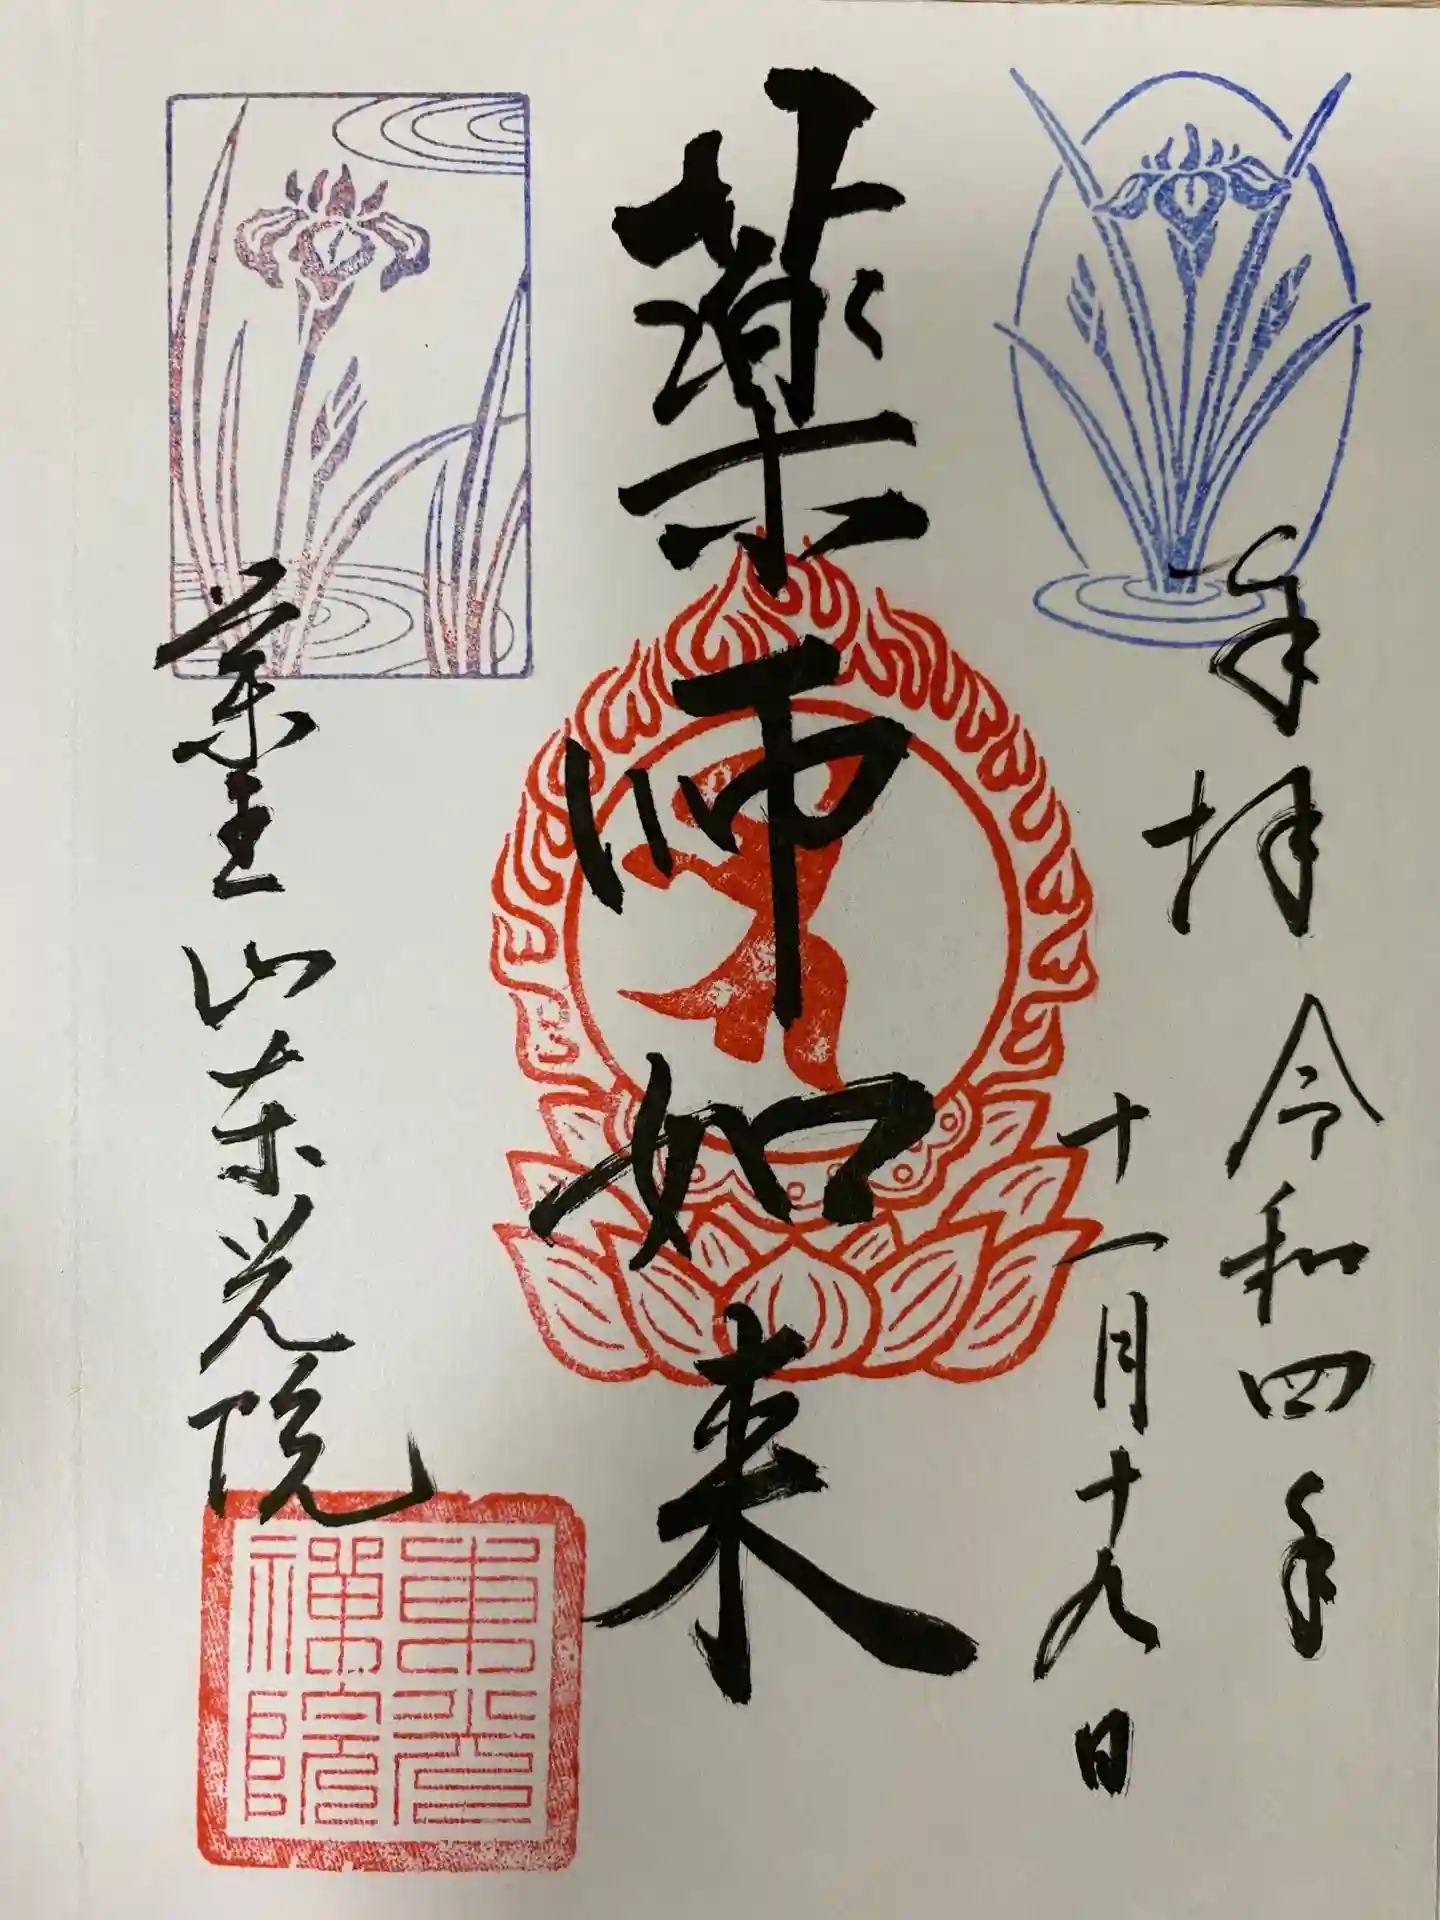 奉拝
令和四年
十一月十九日
薬師如来
薬王山東光院
東光
禅院